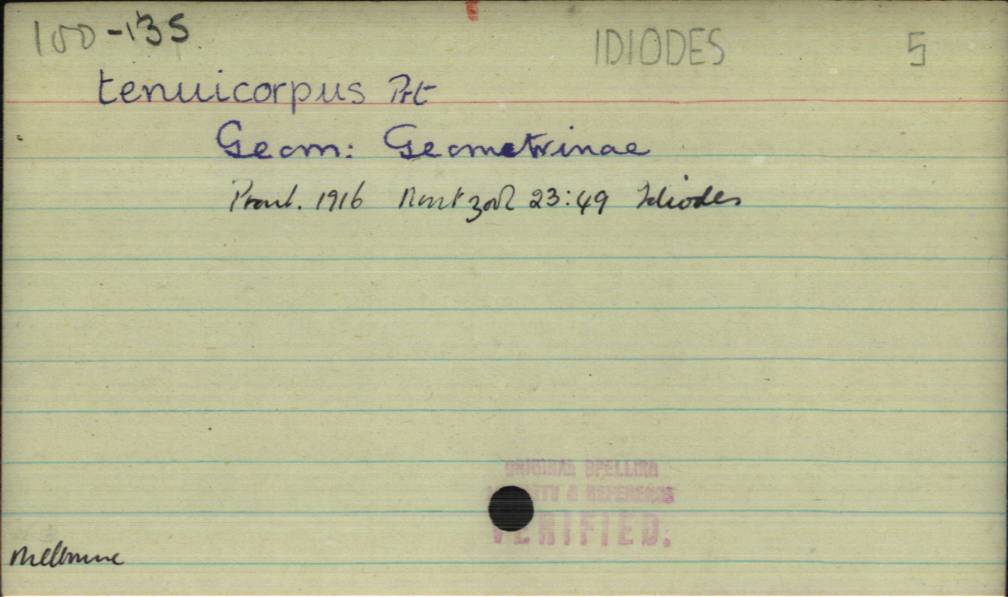 100-135 IDIODES 5
tenuicorpus Prt
Geom: Geometrinae
Prout. 1916 Novit zool 23:49 Idiodes
ORIGINAL SPELLING
& REFERENCE
VERIFIED.
Melbourne